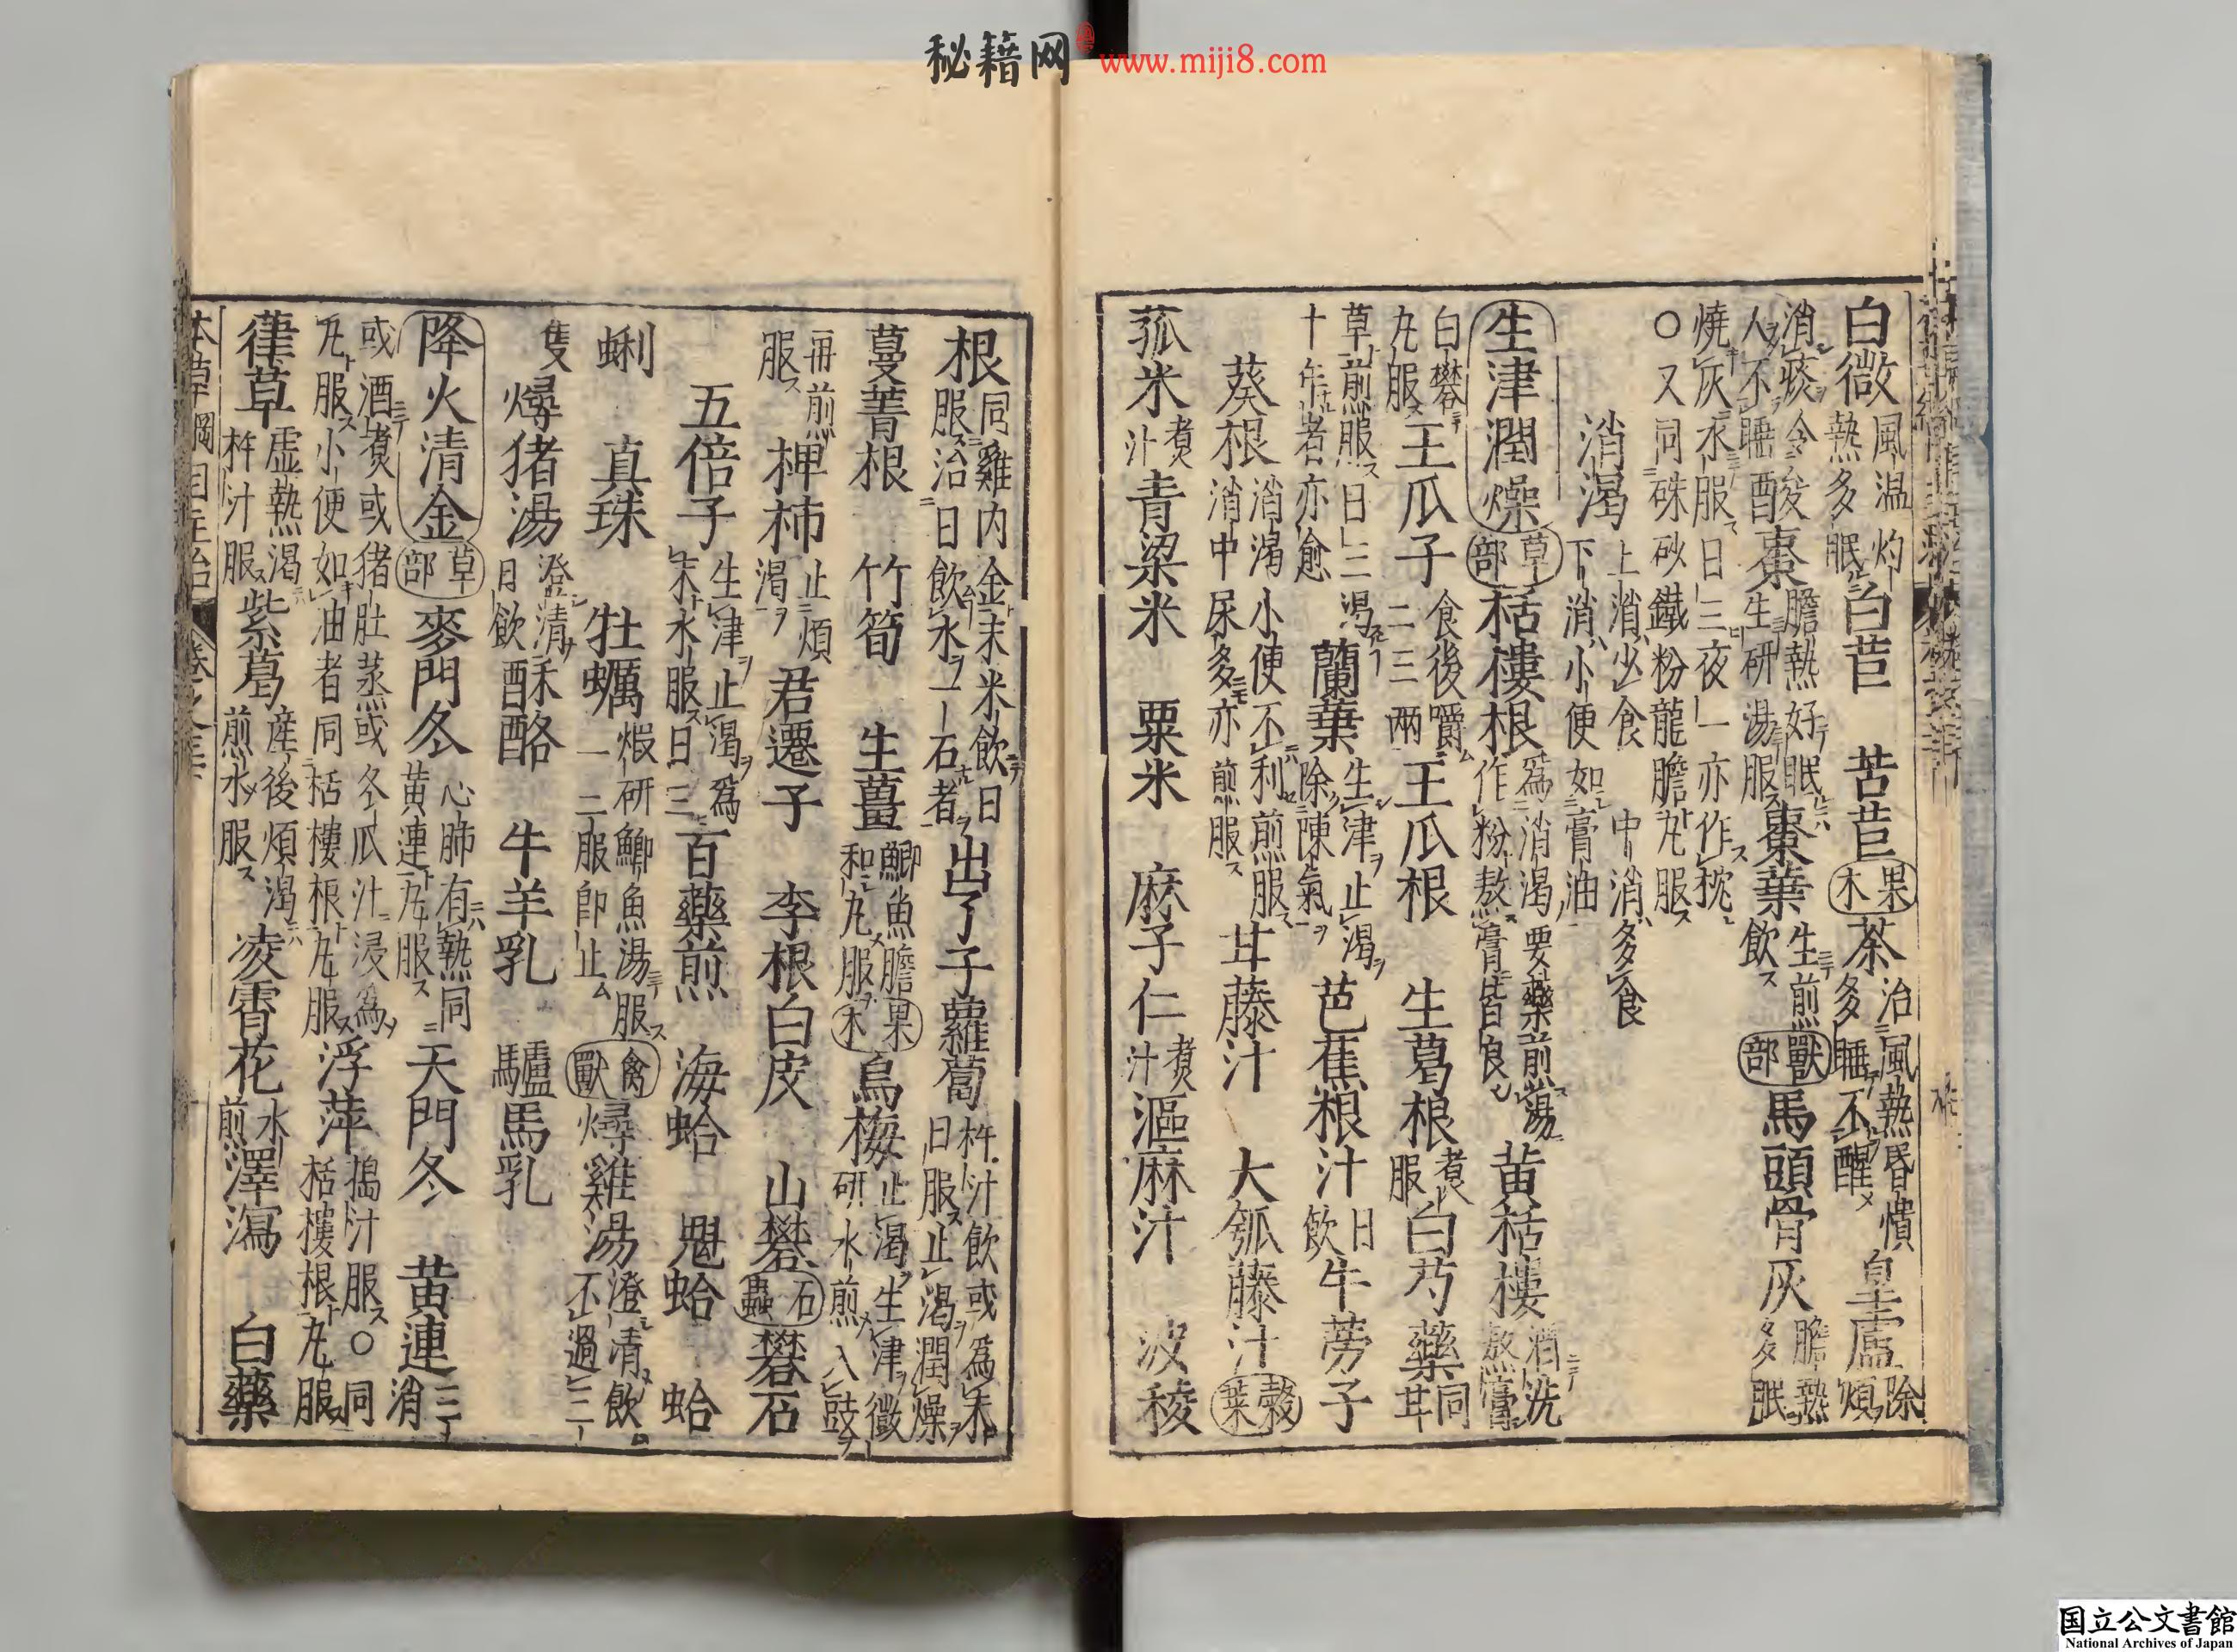 秘籍网 www.miji8.com
白微風温灼熱多眠白苣 苦苣果木茶治風熱昏憒多睡不醒皇盧除煩
消痰令人不睡酸棗膽熱好眠生研湯服棗葉生煎飲獸部馬頭骨灰膽熱多眠
燒灰水服日三夜一亦作枕
○又同硃砂鐵粉龍膽丸服
消渴上消少食 中消多食下消小便如膏油
生津潤燥草部栝樓根為消渴要藥煎湯作粉熬膏皆良黃栝樓酒洗熬膏
白礬丸服王瓜子食後嚼二三兩王瓜根 生葛根煮服白芍藥同甘
草煎服日三渴十年者亦愈蘭葉生津止渴除陳氣芭蕉根汁日飲牛蒡子
葵根消渴小便不利煎服消中尿多亦煎服甘藤汁 大瓠藤汁穀菜
菰米煮汁青粱米 粟米 麻子仁煮汁漚麻汁 波稜
根同雞内金末米飲日服治日飲水一石者出了子蘿蔔杵汁飲或為末日服止渴潤燥
蔓菁根 竹筍 生薑鯽魚膽和丸服果木烏梅止渴生津微研水煎入豉
再煎服椑柿止煩渴君遷子 李根白皮 山礬石蟲礬石
五倍子生津止渴為末水服日三百藥煎 海蛤 魁蛤 蛤
蜊 真珠 牡蠣煅研鯽魚湯服一二服即止禽獸燖雞湯澄清飲不過三
隻燖猪湯澄清日飲酥酪 牛羊乳 驢馬乳
降火清金草部麥門冬心肺有熱同黃連丸服天門冬 黃連三消
或酒煮或猪肚蒸或冬瓜汁浸為丸服小便如油者同栝樓根丸服浮萍搗汁服○同栝樓根丸服
葎草虛熱渴杵汁服紫葛產後煩渴煎水服凌霄花水煎澤瀉 白藥
本草綱目主治 卷之三
国立公文書館
National Archives of Japan